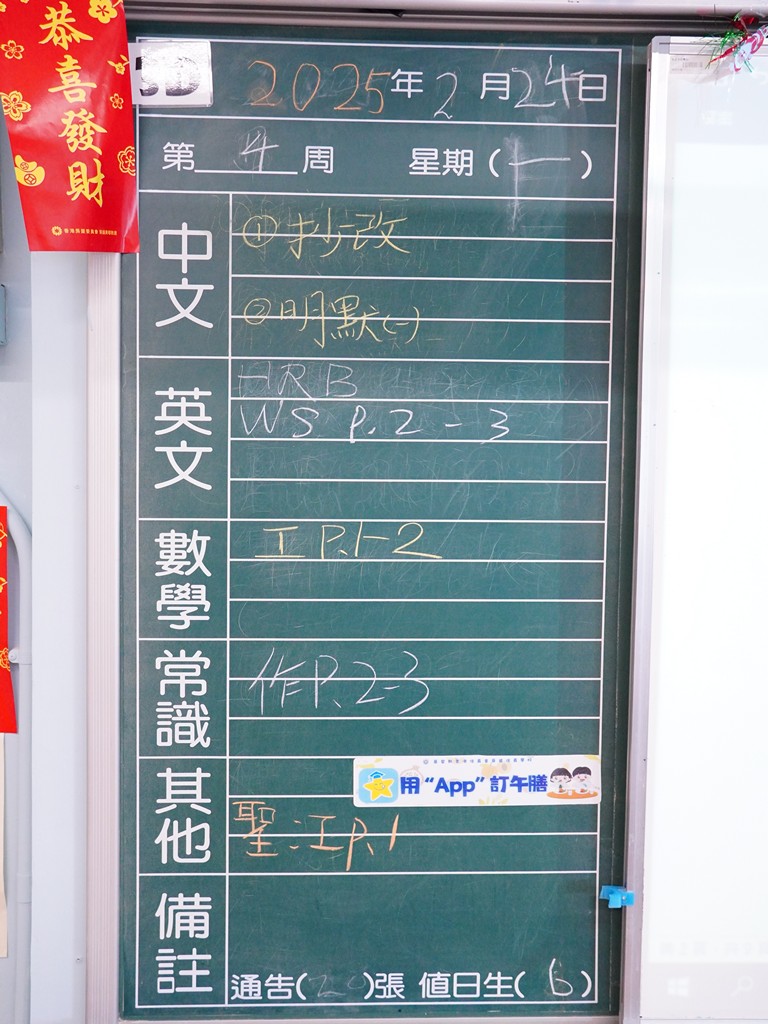 恭喜發財
3D
2025年2月24日
第4周 星期(一)
中文
①抄改
②明默(一)
英文
HRB
WS P.2-3
數學
工 P.1-2
常識
作P.2-3
用“App”訂午膳
其他
聖:工P.1
備註
通告( )張 值日生(6)